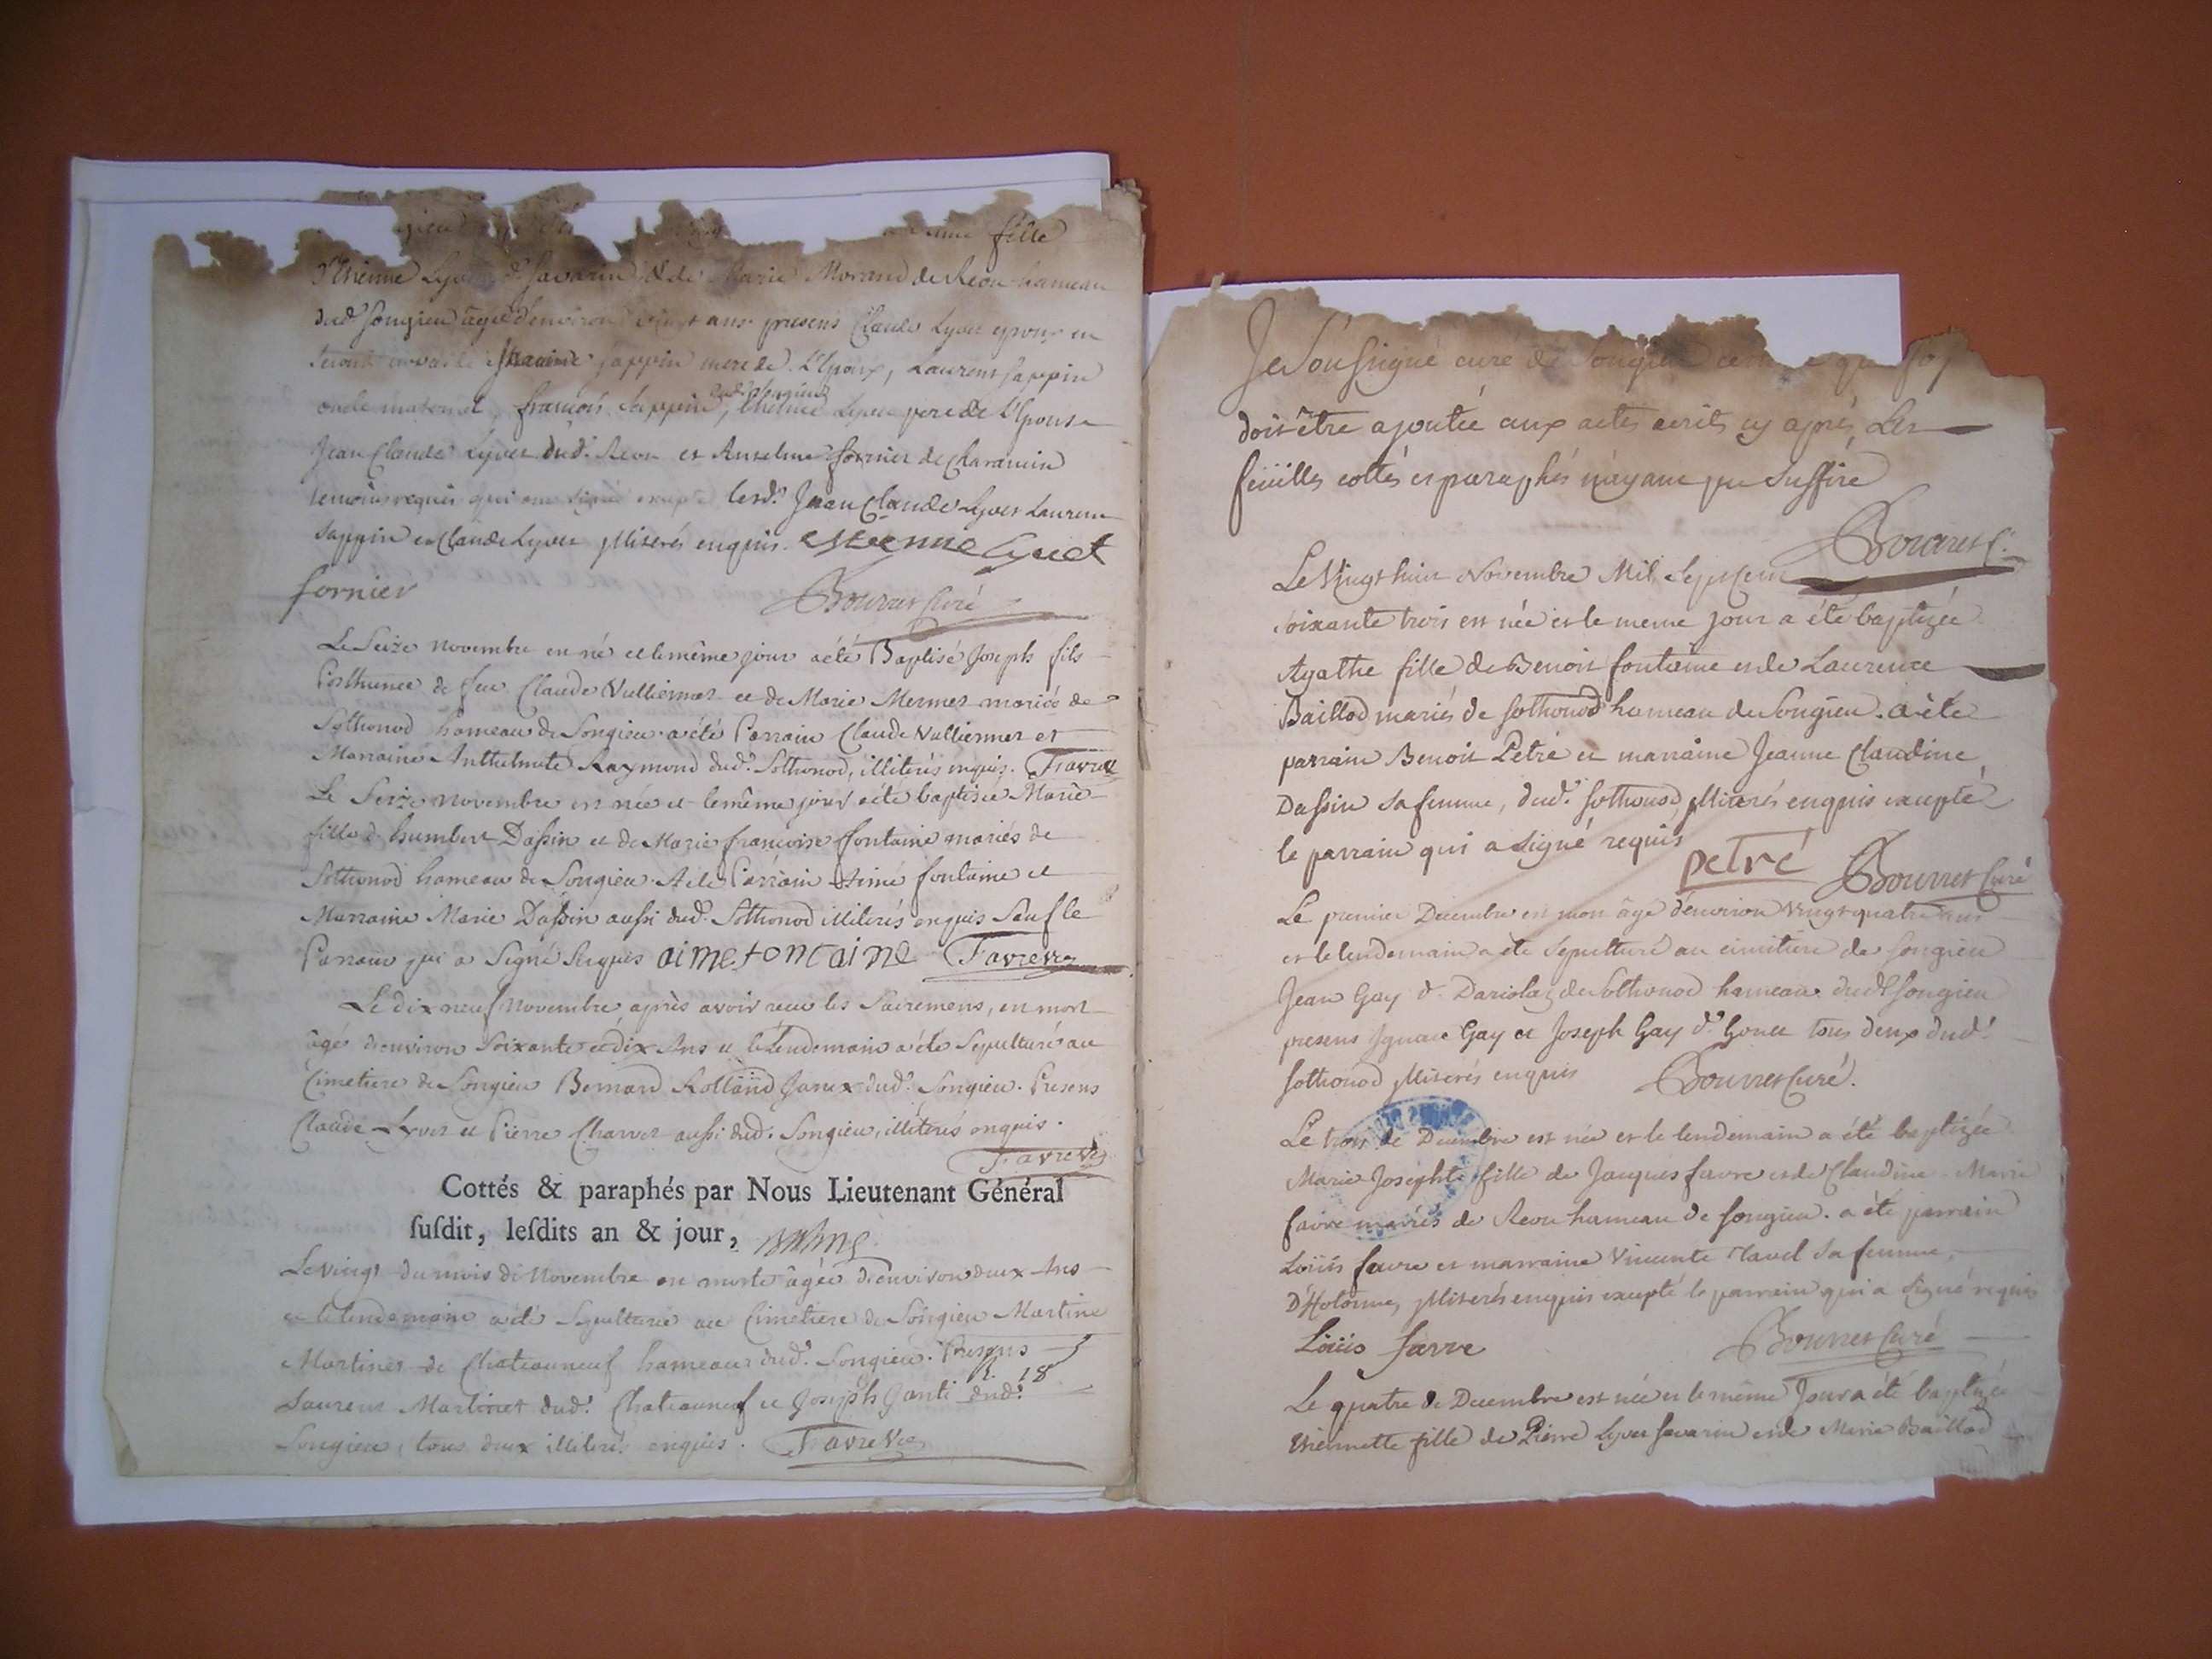 fille
Etienne Lyvet d. Savarin & de Marie Morand de Reon hameau
dud. Songieu âgée d'environ vingt ans presens Claude Lyvet epoux en
jappin mere de L'Epoux, Laurent Jappin
oncle maternel, francois Jappin, Ethienne Lyvet pere de L'Epouse
Jean Claude Lyvet dud. Reon et Anselme fornier de Charancin
temoins requis qui ont signé excepté lesd. Jean Claude Lyvet Laurent
Jappin et Claude Lyvet illiterés enquis. estienne Lyvet
fornier
Bourret Curé
Le Seize novembre est né et le même jour a été Baptisé Joseph fils
Posthume de feu Claude Vulliermet et de Marie Mermet mariés de
Sothonod hameau de Songieu a été Parrain Claude Vulliermet et
Marraine Anthelmete Raymond dud. Sothonod, illiterés enquis. Favre Vic
Le Seize novembre est née et le même jour a été baptisée Marie
fille d. humbert Dassin et de Marie francoise ffontaine mariés de
Sothonod hameau de Songieu. A été Parrain Aimé fontaine et
Marraine Marie Dassin aussi dud. Sothonod illiterés enquis Sauf le
Parrain qui a Signé Requis aime fontaine Favre Vic
Le dix neuf Novembre après avoir recu les Sacremens, est mort
âgé d'environ Soixante et dix Ans et le lendemain a été Sepulturé au
Cimetiere de Songieu Bernard Rolland Janex dud. Songieu. Presens
Claude Lyvet et Pierre Charvet aussi dud. Songieu, illiterés enquis.
Favre Vic
Cottés & paraphés par Nous Lieutenant Général
susdit, lesdits an & jour,
Le vingt du mois de Novembre est morte âgée d'environ deux Ans
et le lendemain a été Sepulturée au Cimetiere de Songieu Martine
Martinet de Chateauneuf hameau dud. Songieu. Presens
18
Laurent Martinet dud. Chateauneuf et Joseph Janti dud.
Songieu, tous deux illiterés enquis. Favre Vic
Je Soussigné curé de Songieu
doit être ajoutée aux actes ecrits cy après, Les
feüilles cottés et paraphés n'ayant pu Suffire
Bourret C.
Le Vingt huit Novembre Mil Sept Cent
soixante trois est née et le meme jour a été baptizée
Agathe fille de Benoit fontaine et de Laurence
Baillod mariés de Sothonod hameau de Songieu. a été
parrain Benoit Petré et marraine Jeanne Claudine
Dassin sa femme, dud. Sothonod illiterés enquis excepté
le parrain qui a signé requis
petré Bourret Curé
Le premier Decembre est mort âgé d'environ vingt quatre ans
et le lendemain a été sepulturé au cimitiere de Songieu
Jean Gay d. Dariolaz de Sothonod hameau dud. Songieu
presens Ignace Gay et Joseph Gay d. Gonet tous deux dud.
Sothonod illiterés enquis Bourret Curé.
Le trois de Decembre est née et le lendemain a été baptizée
Marie Josephte fille de Jacques favre et de Claudine Marie
favre mariés de Reon hameau de Songieu. a été parrain
Loüis favre et marraine Vincente Tavel sa femme,
D'Hotonne, illiterés enquis excepté le parrain qui a signé requis
Loüis favre Bourret Curé
Le quatre de Decembre est née et le même Jour a été baptizée
Etiennette fille de Pierre Lyvet Savarin et de Marie Baillod